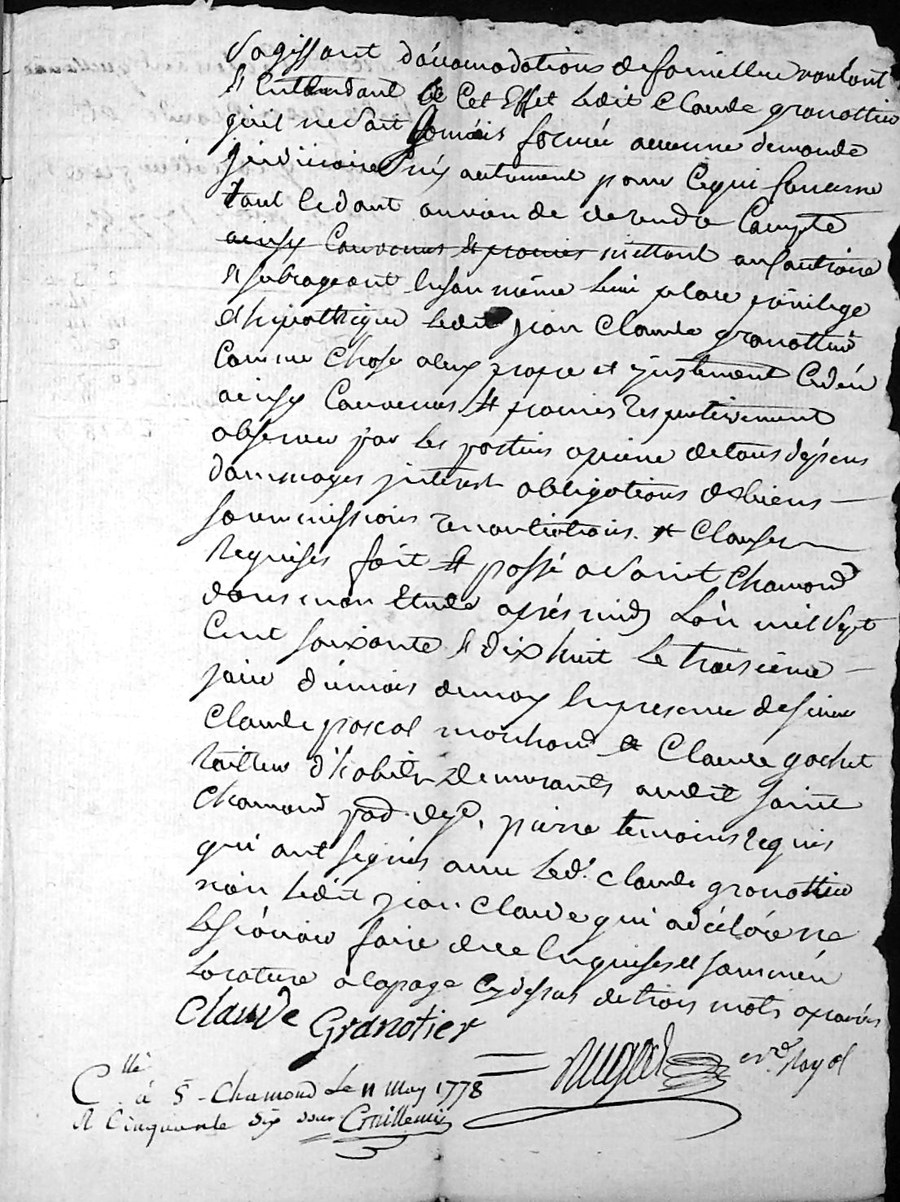 s'agissant d'acomodations de famille voulant
& Entendant Cet Effet ledit Claude granottier
qu'il ne soit Jamais formée aucune demande
Judiciaire ny autrement pour Cequi Concerne
tout Cedont on vien de de rendre Compte
ainsy Convenus & promis mettant
& subrogeant Enson même lieu place privilege
& hipotheque ledit jean Claude granottier
Comme Chose aluy propre et justement Cedeé
ainsy Convenus & promis Respectivement
observer par les parties apeine detous depens
dommages jnterest obligations debiens
soummissions renontiations & Clauses
Requises fait & passé asaint Chamond
dans mon Etude après midy L'an mil sept
Cent soixante & dix huit Le troisieme
jour dumois demay En presence desieur
Claude pascal marchand & Claude gachet
tailleur d'habits demeurants audit saint
Chamond temoins Requis
qui ont signés avec led. Claude granottier
non ledit jean Claude qui adeclaré ne
Le sçavoir faire dece Enquis & sommeé
La rature alapage Cy dessus detrois mots aprouvée
Claude Granotier
nre. Royal
C.llé à St. Chamond Le 11 May 1778
R Cinquante Six sous